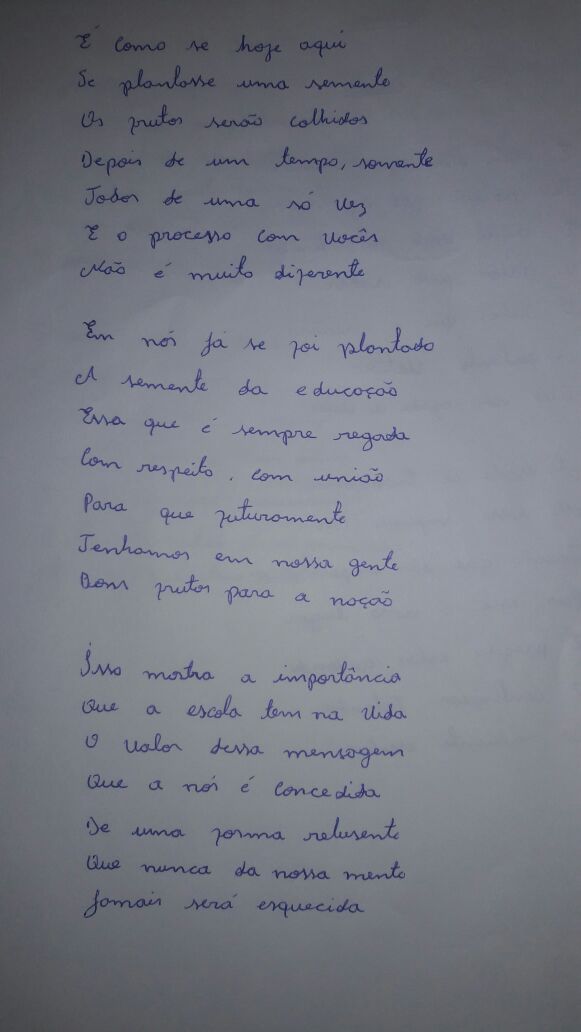 É como se hoje aqui
Se plantasse uma semente
Os frutos serão colhidos
Depois de um tempo, somente
Todos de uma só vez
E o processo com vocês
Não é muito diferente
Em nós já se foi plantado
A semente da educação
Essa que é sempre regada
Com respeito, com união
Para que futuramente
Tenhamos em nossa gente
Bons frutos para a nação
Isso mostra a importância
Que a escola tem na vida
O valor dessa mensagem
Que a nós é concedida
De uma forma relusente
Que nunca da nossa mente
Jamais será esquecida